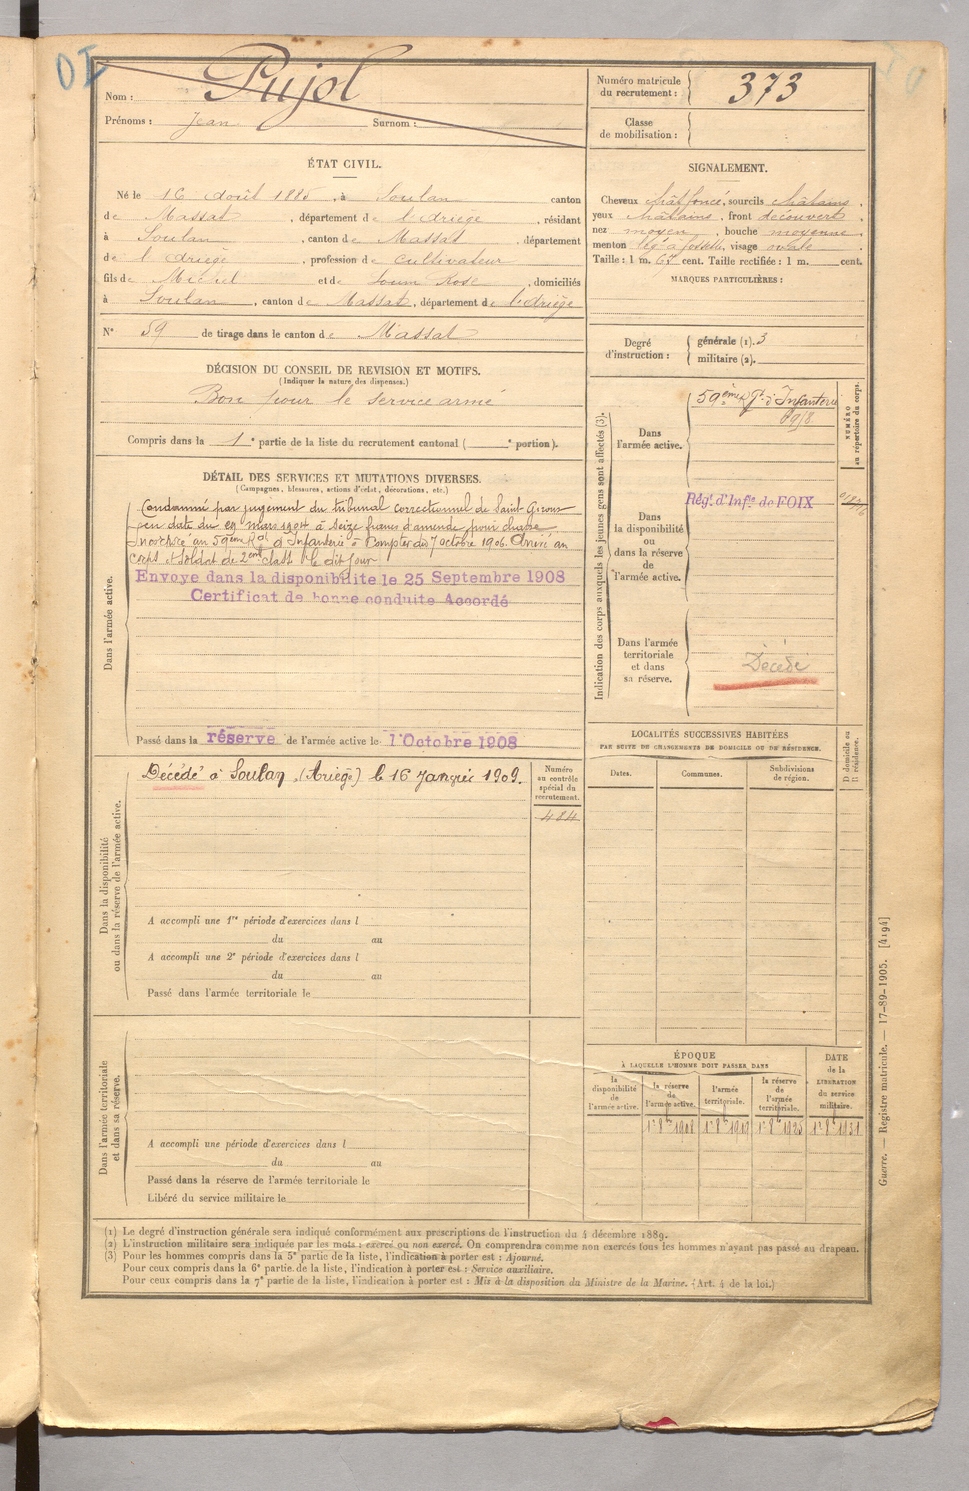 Nom : Pujol
Prénoms : Jean Surnom :
Numéro matricule du recrutement : 373
Classe de mobilisation :
ÉTAT CIVIL.
Né le 16 Août 1885, à Soulan canton
de Massat, département de l'Ariège, résidant
à Soulan, canton de Massat, département
de l'Ariège, profession de Cultivateur
fils de Michel et de Soum Rose, domiciliés
à Soulan, canton de Massat, département de l'Ariège
N° 59 de tirage dans le canton de Massat
DÉCISION DU CONSEIL DE REVISION ET MOTIFS.
(Indiquer la nature des dispenses.)
Bon pour le service armé
Compris dans la 1e partie de la liste du recrutement cantonal ( e portion).
SIGNALEMENT.
Cheveux chât foncé, sourcils châtains,
yeux châtains, front découvert,
nez moyen, bouche moyenne,
menton lég à fossette, visage ovale
Taille : 1 m. 67 cent. Taille rectifiée : 1 m. cent.
MARQUES PARTICULIÈRES :
Degré d'instruction : générale (1). 3
militaire (2).
DÉTAIL DES SERVICES ET MUTATIONS DIVERSES.
(Campagnes, blessures, actions d'éclat, décorations, etc.)
Dans l'armée active.
Condamné par jugement du tribunal correctionnel de Saint Girons
en date du mars 1904 à seize francs d'amende pour chasse
Incorporé au 59ème Rgt d'Infanterie à compter du 7 octobre 1906. Arrivé au
corps et soldat de 2ème classe le dit jour
Envoye dans la disponibilite le 25 Septembre 1908
Certificat de bonne conduite Accordé
Passé dans la réserve de l'armée active le 1 Octobre 1908
Dans la disponibilité ou dans la réserve de l'armée active.
Décédé à Soulan (Ariège) le 16 janvier 1909.
Numéro au contrôle spécial du recrutement.
484
A accompli une 1re période d'exercices dans l
du au
A accompli une 2e période d'exercices dans l
du au
Passé dans l'armée territoriale le
Dans l'armée territoriale et dans sa réserve.
A accompli une période d'exercices dans l
du au
Passé dans la réserve de l'armée territoriale le
Libéré du service militaire le
Indication des corps auxquels les jeunes gens sont affectés (3).
NUMÉRO au répertoire du corps.
Dans l'armée active.
59ème Rgt d'Infanterie
Dans la disponibilité ou dans la réserve de l'armée active.
Régt. d'Infie de FOIX
Dans l'armée territoriale et dans sa réserve.
Décédé
LOCALITÉS SUCCESSIVES HABITÉES
PAR SUITE DE CHANGEMENTS DE DOMICILE OU DE RÉSIDENCE.
Dates. Communes. Subdivisions de région.
D domicile ou R résidence.
ÉPOQUE
À LAQUELLE L'HOMME DOIT PASSER DANS
la disponibilité de l'armée active.
la réserve de l'armée active.
l'armée territoriale.
la réserve de l'armée territoriale.
DATE de la LIBÉRATION du service militaire.
1er 8bre 1908 1er 8bre 1919 1er 8bre 1925 1er 8bre 1931
(1) Le degré d'instruction générale sera indiqué conformément aux prescriptions de l'instruction du 4 décembre 1889.
(2) L'instruction militaire sera indiquée par les mots : exercé ou non exercé. On comprendra comme non exercés tous les hommes n'ayant pas passé au drapeau.
(3) Pour les hommes compris dans la 5e partie de la liste, l'indication à porter est : Ajourné.
Pour ceux compris dans la 6e partie de la liste, l'indication à porter est : Service auxiliaire.
Pour ceux compris dans la 7e partie de la liste, l'indication à porter est : Mis à la disposition du Ministre de la Marine. (Art. 4 de la loi.)
Guerre. — Registre matricule. — 17-89-1905. [4194]